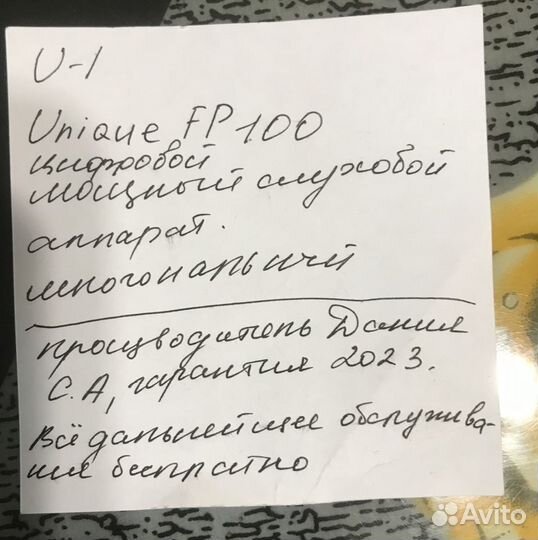 U-1
Unique FP 100
цифровой
мощный слуховой
аппарат.
многональный
производитель Дания
С.А, гарантия 2023.
Всё дальнейшее обслужива-
ние бесплатно
Avito